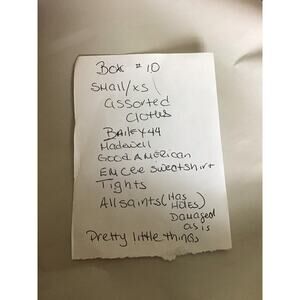 Box #10
Small/xs
assorted
clothes
Bailey44
Madewell
Good American
EMCee sweatshirt
Tights
Allsaints (Has Holes)
Damaged
as is
Pretty little things